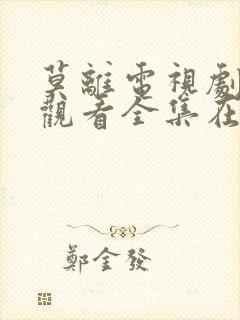 莫離電視劇
觀看全集在
鄭金發